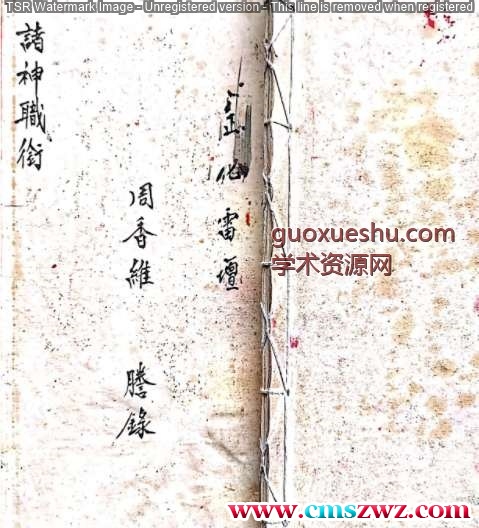 TSR Watermark Image - Unregistered version - This line is removed when registered
化雷壇
周香維 謄錄
諸神職銜
guoxueshu.com
学术资源网
www.cmszwz.com